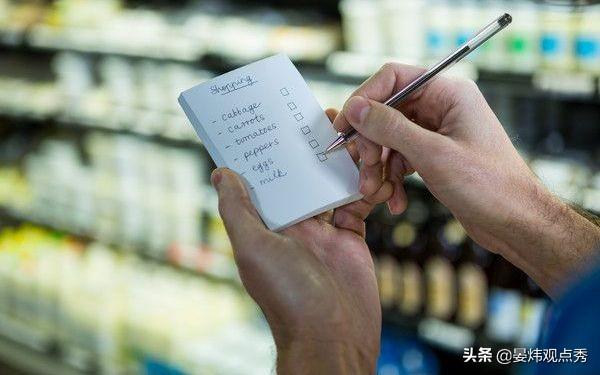 Shopping
- cabbage
- carrots
- tomatoes
- peppers
- eggs
- milk
头条 @晏炜观点秀